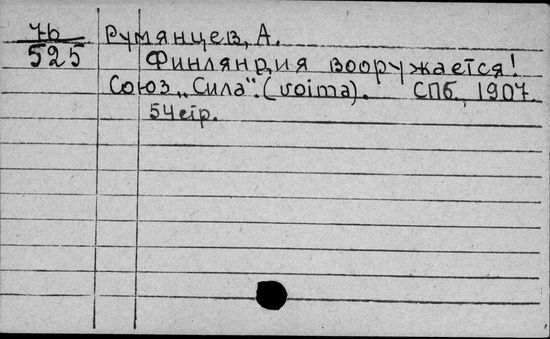 76
525
Румянцев, А.
Финляндия вооружается!
Союз „Сила". (voima). СПб., 1907.
54 стр.